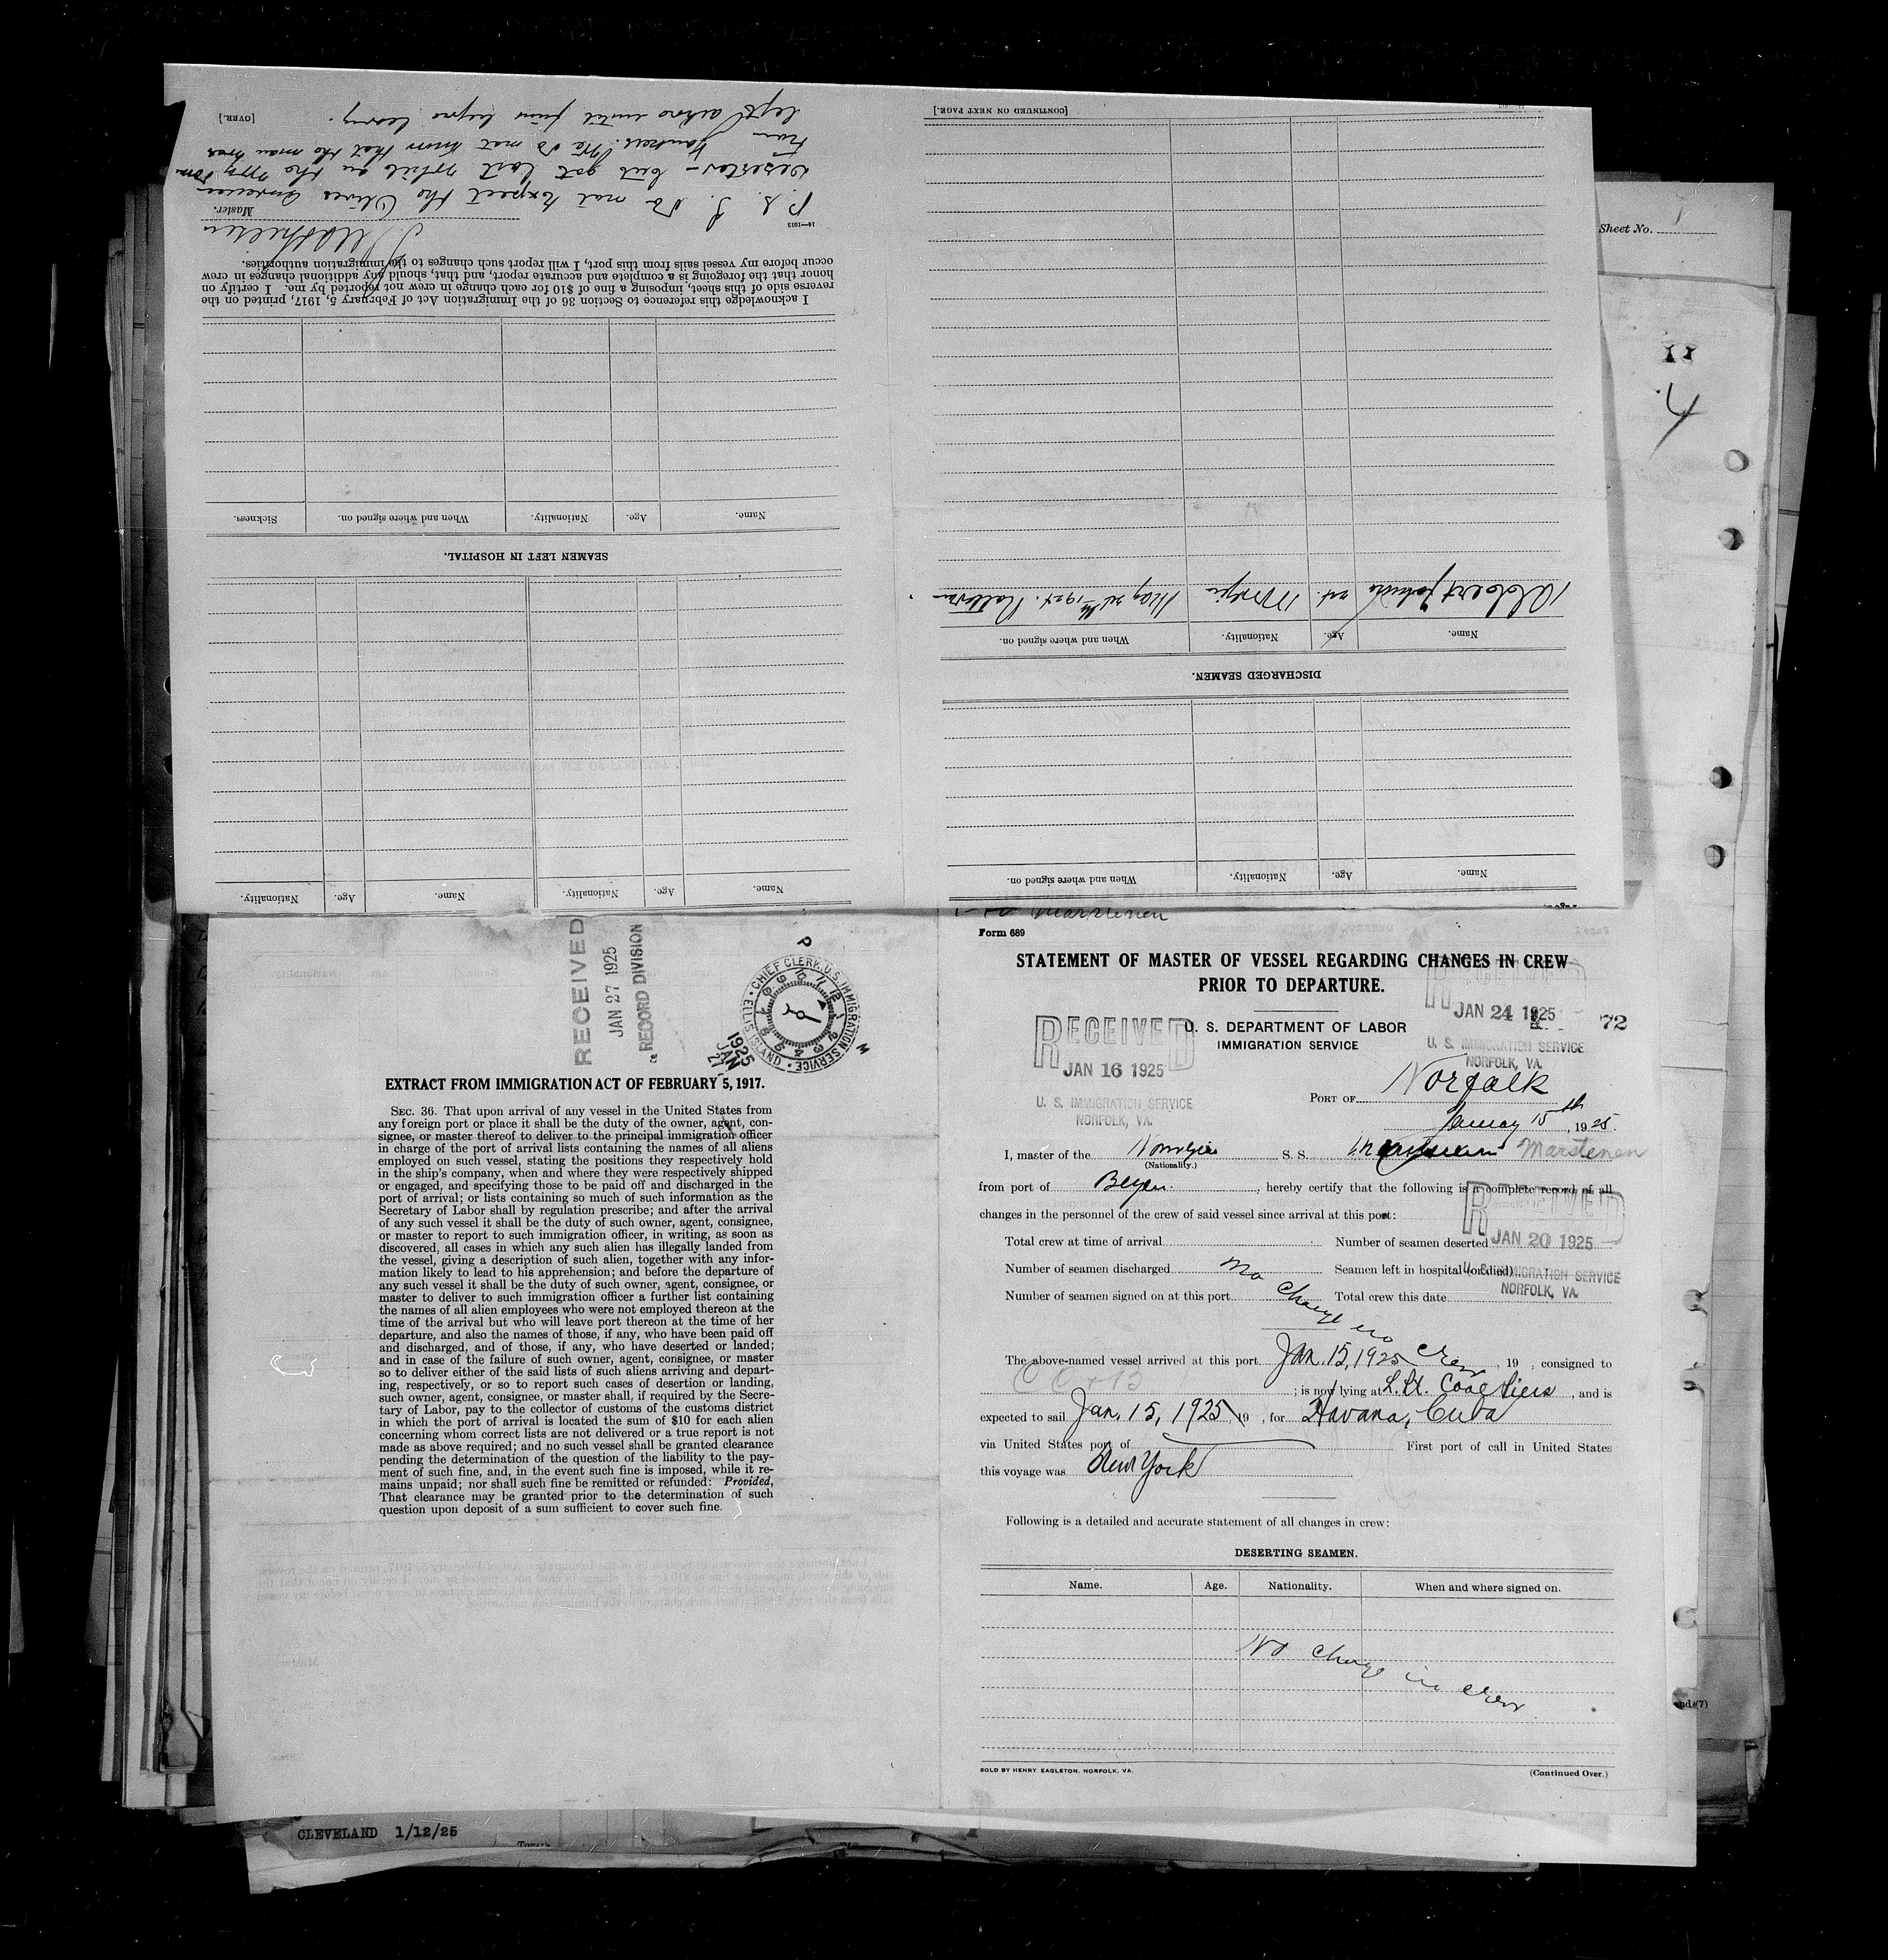 [CONTINUED ON NEXT PAGE.]
Name. Age. Nationality. When and where signed on.
DISCHARGED SEAMEN.
Name. Age. Nationality. When and where signed on.
May 24th 1924.
Name. Age. Nationality. Name. Age. Nationality.
SEAMEN LEFT IN HOSPITAL.
Name. Age. Nationality. When and where signed on. Sickness.
I acknowledge this reference to Section 36 of the Immigration Act of February 5, 1917, printed on the
reverse side of this sheet, imposing a fine of $10 for each change in crew not reported by me. I certify on
honor that the foregoing is a complete and accurate report, and that, should any additional changes in crew
occur before my vessel sails from this port, I will report such changes to the immigration authorities.
Master.
16—1913
P.S. I do not expect the Oliver
deserter - but got lost while on the way
from Yonkers. We do not know that the man was
left ashore until just before leaving.
[OVER.]
Sheet No. 1
11
4.
RECEIVED
JAN 27 1925
RECORD DIVISION
CHIEF CLERK, U.S. IMMIGRATION SERVICE • ELLIS ISLAND •
1925
JAN
27
EXTRACT FROM IMMIGRATION ACT OF FEBRUARY 5, 1917.
SEC. 36. That upon arrival of any vessel in the United States from
any foreign port or place it shall be the duty of the owner, agent, con-
signee, or master thereof to deliver to the principal immigration officer
in charge of the port of arrival lists containing the names of all aliens
employed on such vessel, stating the positions they respectively hold
in the ship's company, when and where they were respectively shipped
or engaged, and specifying those to be paid off and discharged in the
port of arrival; or lists containing so much of such information as the
Secretary of Labor shall by regulation prescribe; and after the arrival
of any such vessel it shall be the duty of such owner, agent, consignee,
or master to report to such immigration officer, in writing, as soon as
discovered, all cases in which any such alien has illegally landed from
the vessel, giving a description of such alien, together with any infor-
mation likely to lead to his apprehension; and before the departure of
any such vessel it shall be the duty of such owner, agent, consignee, or
master to deliver to such immigration officer a further list containing
the names of all alien employees who were not employed thereon at the
time of the arrival but who will leave port thereon at the time of her
departure, and also the names of those, if any, who have been paid off
and discharged, and of those, if any, who have deserted or landed;
and in case of the failure of such owner, agent, consignee, or master
so to deliver either of the said lists of such aliens arriving and depart-
ing, respectively, or so to report such cases of desertion or landing,
such owner, agent, consignee, or master shall, if required by the Secre-
tary of Labor, pay to the collector of customs of the customs district
in which the port of arrival is located the sum of $10 for each alien
concerning whom correct lists are not delivered or a true report is not
made as above required; and no such vessel shall be granted clearance
pending the determination of the question of the liability to the pay-
ment of such fine, and, in the event such fine is imposed, while it re-
mains unpaid; nor shall such fine be remitted or refunded: Provided,
That clearance may be granted prior to the determination of such
question upon deposit of a sum sufficient to cover such fine.
Form 689
STATEMENT OF MASTER OF VESSEL REGARDING CHANGES IN CREW
PRIOR TO DEPARTURE.
U. S. DEPARTMENT OF LABOR
IMMIGRATION SERVICE
RECEIVED
JAN 16 1925
U. S. IMMIGRATION SERVICE
NORFOLK, VA.
RECEIVED
JAN 24 1925
U. S. IMMIGRATION SERVICE
NORFOLK, VA.
72
PORT OF Norfolk
January 15th, 1925.
I, master of the S. S. Marstenen
(Nationality.)
from port of Bergen., hereby certify that the following is a complete record of all
changes in the personnel of the crew of said vessel since arrival at this port:
RECEIVED
JAN 20 1925
U. S. IMMIGRATION SERVICE
NORFOLK, VA.
Total crew at time of arrival Number of seamen deserted
Number of seamen discharged Seamen left in hospital (or died)
Number of seamen signed on at this port Total crew this date
no change in crew
The above-named vessel arrived at this port Jan. 15, 1925, 19 , consigned to
; is now lying at Coal Piers, and is
expected to sail Jan. 15, 1925, 19 , for Havana, Cuba
via United States port of First port of call in United States
this voyage was New York
Following is a detailed and accurate statement of all changes in crew:
DESERTING SEAMEN.
Name. Age. Nationality. When and where signed on.
No change in crew
SOLD BY HENRY EAGLETON, NORFOLK, VA.
(Continued Over.)
CLEVELAND 1/12/25